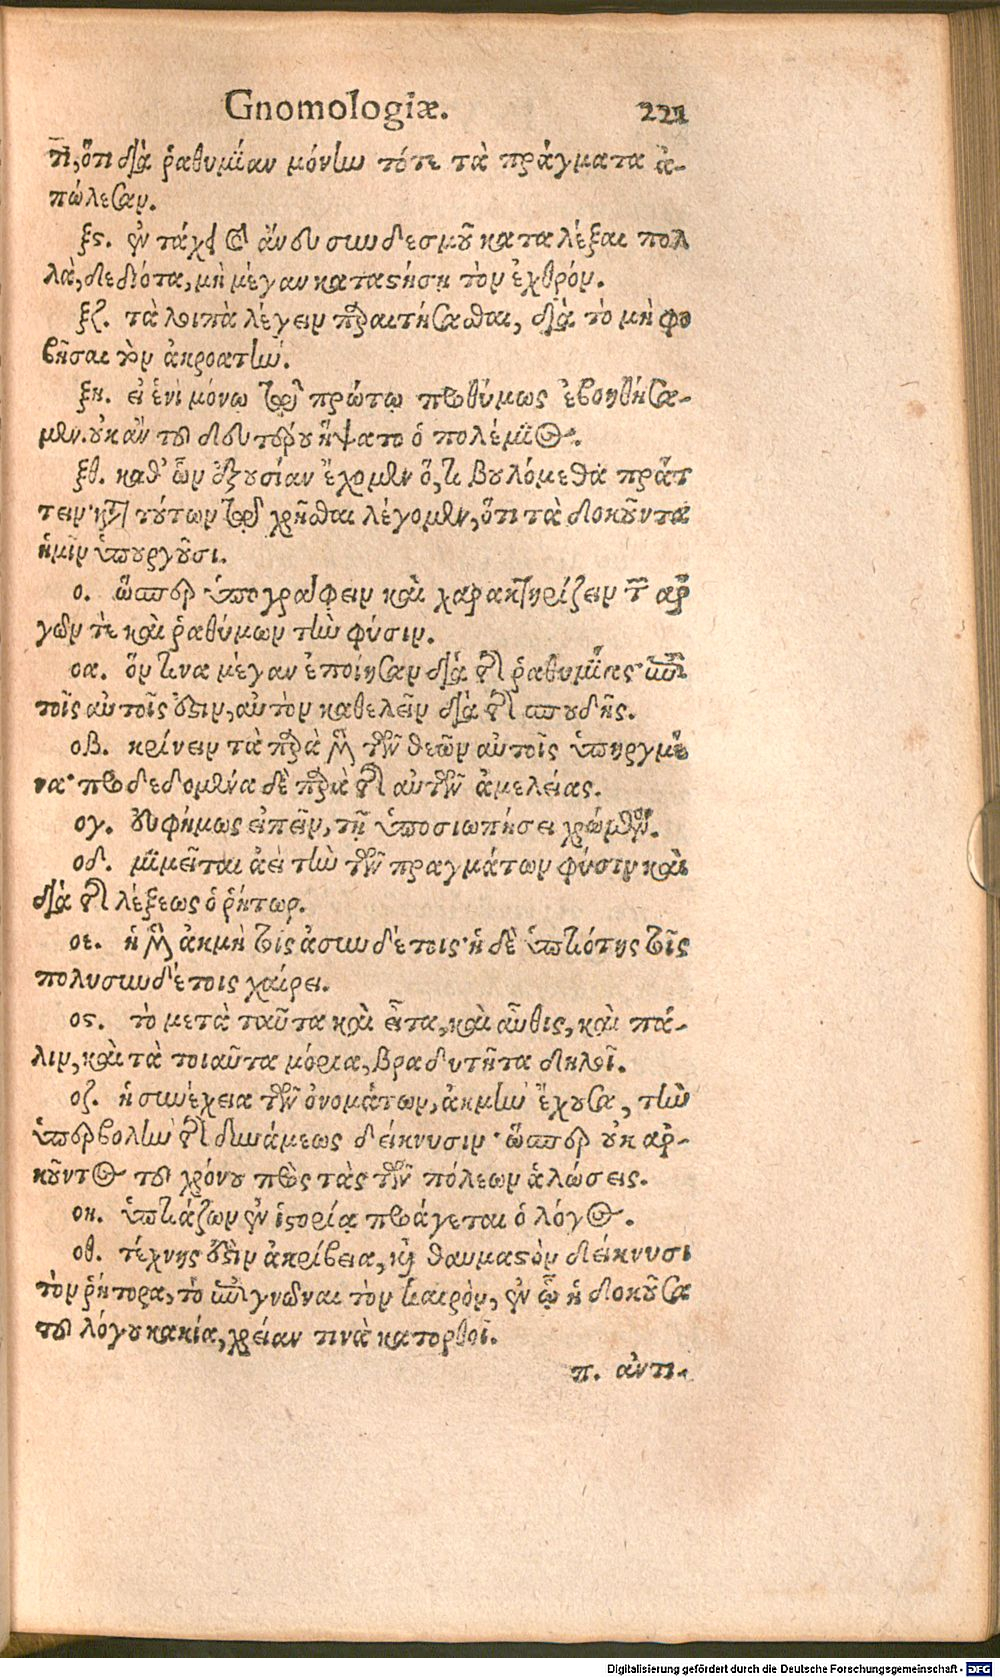 Gnomologiæ. 221
τι, ὅτι διὰ ῥαθυμίαν μόνην τότε τὰ πράγματα ἀ-
πώλεσαν.
ξϛ. ἐν τάχει καὶ ἄνευ συνδεσμοῦ καταλέξαι πολ
λὰ, δεδιότα, μὴ μέγαν καταστήσῃ τὸν ἐχθρόν.
ξζ. τὰ λοιπὰ λέγειν παραιτήσασθαι, διὰ τὸ μὴ φο
βῆσαι τὸν ἀκροατήν.
ξη. εἰ ἑνὶ μόνῳ τῷ πρώτῳ προθύμως ἐβοηθήσα-
μεν. οὐκ ἂν τοῦ δευτέρου ἥψατο ὁ πολέμιος.
ξθ. καθ' ὧν ἐξουσίαν ἔχομεν ὅ, τι βουλόμεθα πράτ
τειν· κατὰ τούτων τῷ χρῆσθαι λέγομεν, ὅτι τὰ δοκοῦντα
ἡμῖν ὑπουργοῦσι.
ο. ὥσπερ ὑπογράφειν καὶ χαρακτηρίζειν τὴν ἀρ
γῶν τε καὶ ῥαθύμων τὴν φύσιν.
οα. ὅν τινα μέγαν ἐποίησαν διὰ τῆς ῥαθυμίας· ἐπὶ
τοῖς αὐτοῖς ἐστιν, αὐτὸν καθελεῖν διὰ τῆς σπουδῆς.
οβ. κρίνειν τὰ παρὰ μὲν τῶν θεῶν αὐτοῖς ὑπηργμέ
να· προδεδομένα δὲ παρὰ τῆς αὐτῶν ἀμελείας.
ογ. εὐφήμως εἰπεῖν, τῇ ὑποσιωπήσει χρώμενον.
οδ. μιμεῖται ἀεὶ τὴν τῶν πραγμάτων φύσιν καὶ
διὰ τῆς λέξεως ὁ ῥήτωρ.
οε. ἡ μὲν ἀκμὴ τοῖς ἀσυνδέτοις· ἡ δὲ ὑπτιότης τοῖς
πολυσυνδέτοις χαίρει.
οϛ. τὸ μετὰ ταῦτα καὶ εἶτα, καὶ αὖθις, καὶ πά-
λιν, καὶ τὰ τοιαῦτα μόρια, βραδυτῆτα δηλοῖ.
οζ. ἡ συνέχεια τῶν ὀνομάτων, ἀκμὴν ἔχουσα, τὴν
ὑπερβολὴν τῆς δυνάμεως δείκνυσιν· ὥσπερ οὐκ ἀρ-
κοῦντος τοῦ χρόνου πρὸς τὰς τῶν πόλεων ἁλώσεις.
οη. ὑπτιάζων ἐν ἱστορίᾳ προάγεται ὁ λόγος.
οθ. τέχνης ἐστὶν ἀκρίβεια, καὶ θαυμαστὸν δείκνυσι
τὸν ῥήτορα, τὸ ἐπιγνῶναι τὸν καιρὸν, ἐν ᾧ ἡ δοκοῦσα
τοῦ λόγου κακία, χρείαν τινὰ κατορθοῖ.
π. ἀντι-
Digitalisierung gefördert durch die Deutsche Forschungsgemeinschaft - DFG